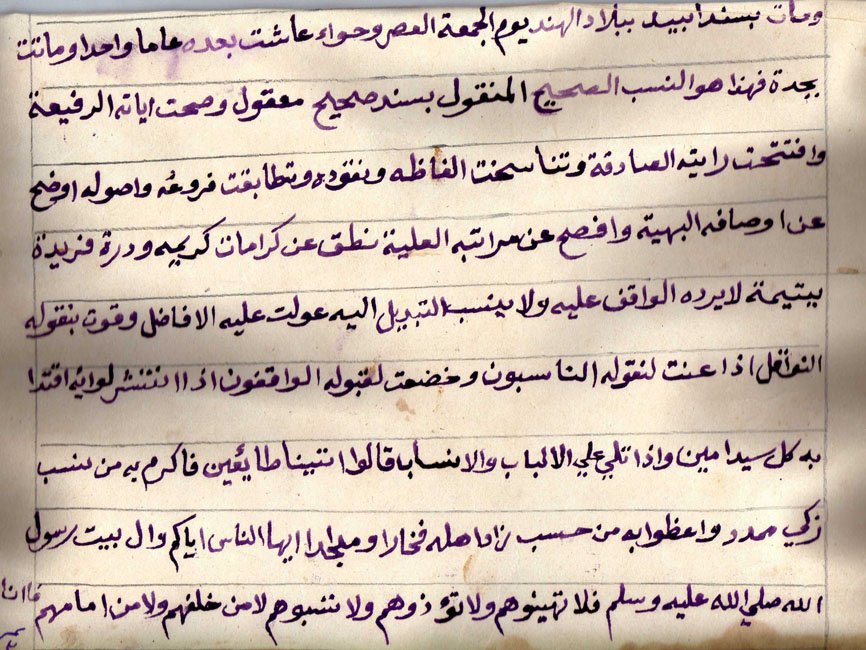 ومات بسندابيد ببلاد الهند يوم الجمعة العصر وحواء عاشت بعده عاما واحدا وماتت
بجدة فهذا هو النسب الصحيح المنقول بسند صحيح معقول وصحت اياته الرفيعة
وافتتحت رايته الصادقة وتناسخت الفاظه ونقوده وتطابقت فروعه واصوله اوضح
عن اوصافه البهية وافصح عن مراتبه العلية نطق عن كرامات كريمه ودرة فريدة
يتيمة لا يرده الواقف عليه ولا ينسب التبديل اليه عولت عليه الافاضل وقوت بنقوله
النواقل اذا عنت لنقوله الناسبون وخضعت لقبوله الواقفون اذا انتشر لوائه اقتدا
به كل سيد امين واذا تلي علي الالباب والانساب قالوا اتينا طايعين فاكرم به من نسب
زكي واعظوا به من حسب زاد اهله فخارا ومجدا ايها الناس اياكم وال بيت رسول
الله صلي الله عليه وسلم فلا تهينوهم ولا تؤذوهم ولا تسبوهم لا من خلفهم ولا من امامهم